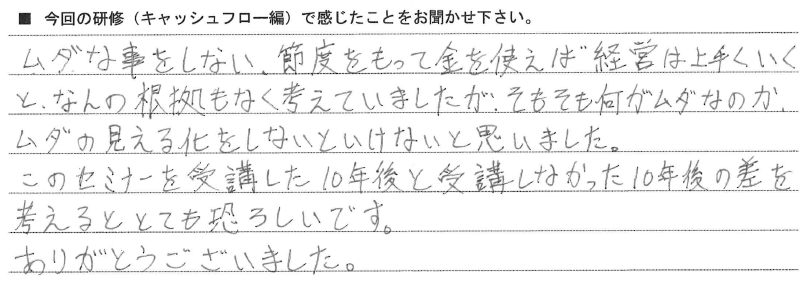 ■ 今回の研修（キャッシュフロー編）で感じたことをお聞かせ下さい。
ムダな事をしない、節度をもって金を使えば経営は上手くいく
と、なんの根拠もなく考えていましたが、そもそも何がムダなのか、
ムダの見える化をしないといけないと思いました。
このセミナーを受講した10年後と受講しなかった10年後の差を
考えるととても恐ろしいです。
ありがとうございました。